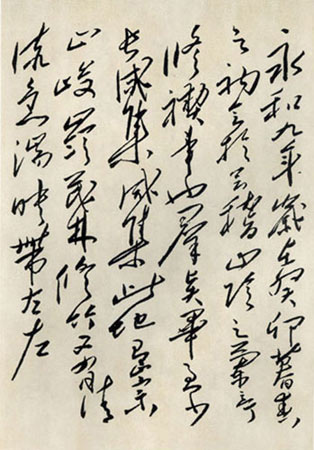 永和九年歲在癸卯暮春
之初会於会稽山阴之蘭亭
修禊事也群贤畢至少
長咸集咸集此地有崇
山峻嶺茂林修竹又有清
流急湍映帶左右